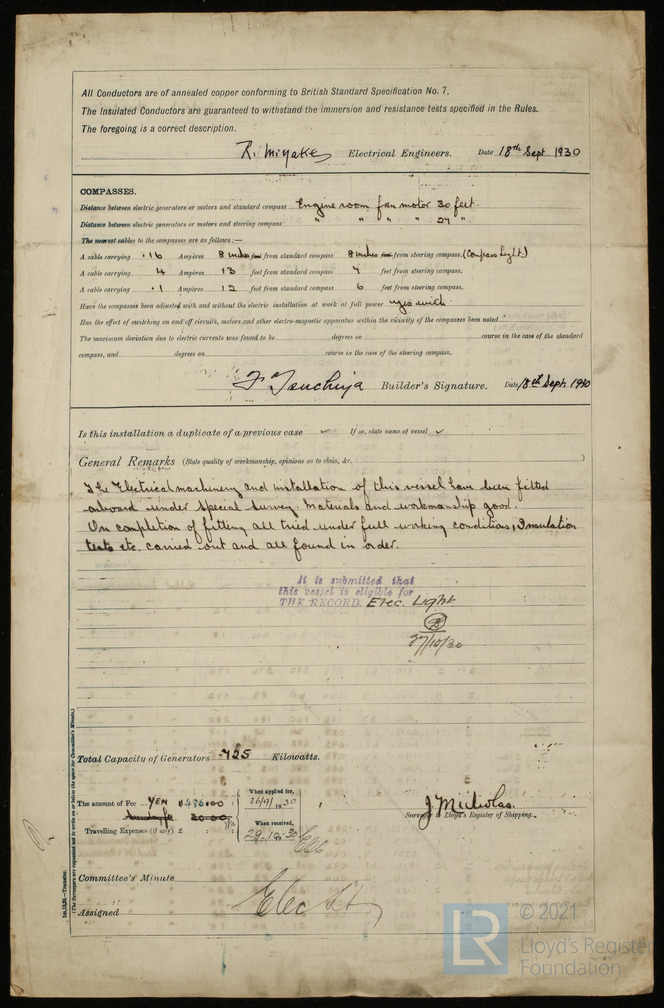 All Conductors are of annealed copper conforming to British Standard Specification No. 7.
The Insulated Conductors are guaranteed to withstand the immersion and resistance tests specified in the Rules.
The foregoing is a correct description.
R. Miyake Electrical Engineers. Date 18th Sept 1930
COMPASSES.
Distance between electric generators or motors and standard compass Engine room fan motor 30 feet.
Distance between electric generators or motors and steering compass " " " " 27 "
The nearest cables to the compasses are as follows:—
A cable carrying .16 Ampères 8 inches feet from standard compass 8 inches feet from steering compass. (Compass Light)
A cable carrying 4 Ampères 13 feet from standard compass 7 feet from steering compass.
A cable carrying .1 Ampères 12 feet from standard compass 6 feet from steering compass.
Have the compasses been adjusted with and without the electric installation at work at full power
Has the effect of switching on and off circuits, motors and other electro-magnetic apparatus within the vicinity of the compasses been noted
The maximum deviation due to electric currents was found to be degrees on course in the case of the standard
compass, and degrees on course in the case of the steering compass.
Builder's Signature. Date 18th Sept. 1930
Is this installation a duplicate of a previous case If so, state name of vessel
General Remarks (State quality of workmanship, opinions as to class, &c.)
The Electrical machinery and installation of this vessel have been fitted
onboard under special survey. Materials and workmanship good.
On completion of fitting all tried under full working conditions, Insulation
tests etc. carried out and all found in order.
It is submitted that
this vessel is eligible for
THE RECORD. Elec. Light.
27/10/30
Total Capacity of Generators 725 Kilowatts.
The amount of Fee ... YEN 496.00
When applied for,
16/9/1930
20.00
Travelling Expenses (if any) £
When received,
29.10.30
J. Nicholas.
Surveyor to Lloyd's Register of Shipping.
Committee's Minute
Assigned
Elec Lt
(The Surveyors are requested not to write on or below the space for Committee's Minute.)
© 2021
LR
Lloyd's Register
Foundation